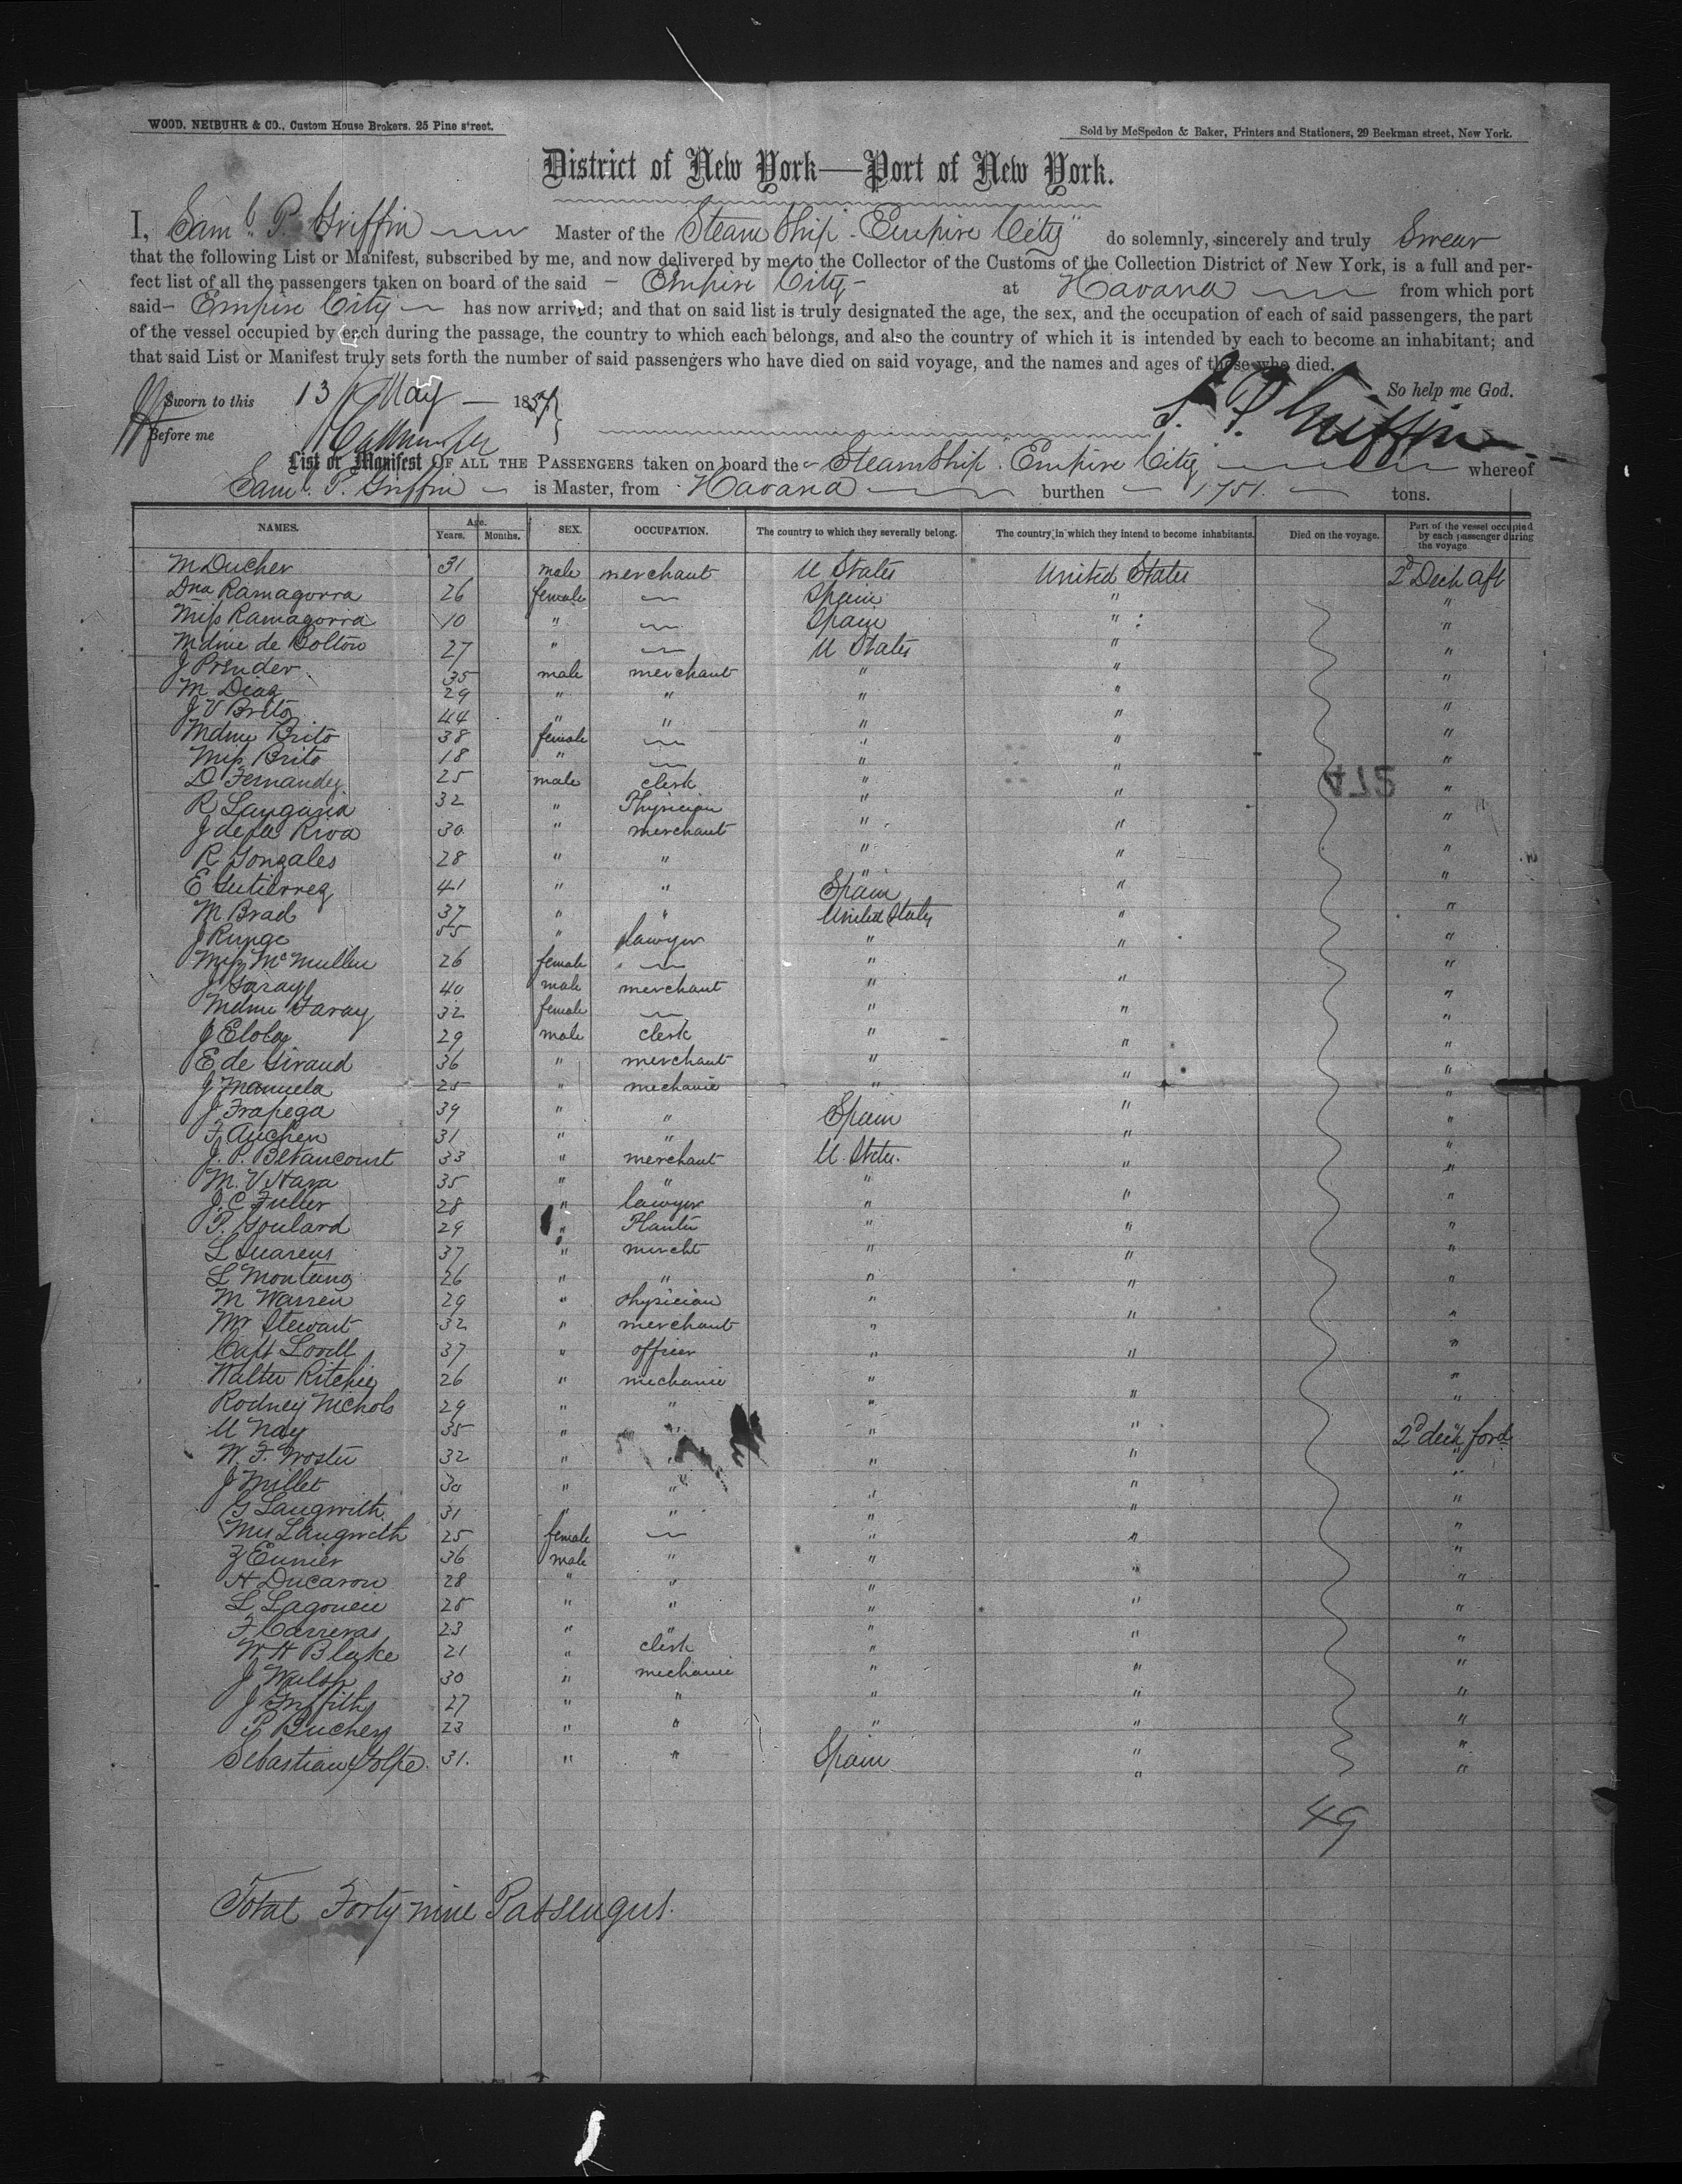 WOOD, NEIBUHR & CO., Custom House Brokers. 25 Pine street.
Sold by McSpedon & Baker, Printers and Stationers, 29 Beekman street, New York.
District of New York—Port of New York.
I, Saml. P. Griffin Master of the Steam Ship "Empire City" do solemnly, sincerely and truly Swear
that the following List or Manifest, subscribed by me, and now delivered by me to the Collector of the Customs of the Collection District of New York, is a full and per-
fect list of all the passengers taken on board of the said – Empire City – at Havana from which port
said – Empire City – has now arrived; and that on said list is truly designated the age, the sex, and the occupation of each of said passengers, the part
of the vessel occupied by each during the passage, the country to which each belongs, and also the country of which it is intended by each to become an inhabitant; and
that said List or Manifest truly sets forth the number of said passengers who have died on said voyage, and the names and ages of those who died.
So help me God.
Sworn to this 13 May 1857
Before me
S. P. Griffin
List or Manifest OF ALL THE PASSENGERS taken on board the Steam Ship Empire City whereof
Saml. P. Griffin is Master, from Havana burthen 1751. tons.
NAMES. Age. Years. Months. SEX. OCCUPATION. The country to which they severally belong. The country in which they intend to become inhabitants. Died on the voyage. Part of the vessel occupied by each passenger during the voyage
M Ducher 31 male merchant U States United States 2d Deck aft
Dna Ramagorra 26 female — Spain " "
Miss Ramagorra 10 " — Spain " "
Mdme de Bolton 27 " — U States " "
J Pruder 35 male merchant " " "
M Diaz 29 " " " " "
J V Brito 44 " " " " "
Mdme Brito 38 female — " " "
Miss Brito 18 " — " " "
D Fernandez 25 male clerk " " "
R 32 " Physician " " "
J de la Riva 30 " merchant " " "
R Gonzales 28 " " " " "
E Gutierrez 41 " " Spain " "
M Brad 37 " " United States " "
J Runge 55 " lawyer " " "
Miss McMullen 26 female — " " "
J Garay 40 male merchant " " "
Mdme Garay 32 female — " " "
J Elola 29 male clerk " " "
E de Giraud 36 " merchant " " "
J Manuela 25 " mechanic " " "
J Frapega 39 " " Spain " "
F Auchen 31 " " " "
J. P. Betancourt 33 " merchant U. States. " "
M. V Hara 35 " " " " "
J. C Fuller 28 " lawyer " " "
P. Goulard 29 " Planter " " "
L Suarens 37 " mercht " " "
L Montang 26 " " " " "
M Warren 29 " physician " " "
Mr Stewart 32 " merchant " " "
Capt Lovell 37 " officer " " "
Walter Ritchie 26 " mechanic " " "
Rodney Nichols 29 " " " " "
U Nay 35 " " " " 2d deck ford
W. F. Woster 32 " " " " "
J Millet 30 " " " " "
G Langwith 31 " " " " "
Mrs Langwith 25 female — " " "
Z Eunier 36 male " " " "
H Ducaron 28 " " " " "
L Lagoueie 25 " " " " "
F Carreras 23 " " " " "
W H Blake 21 " clerk " " "
J Walsh 30 " mechanic " " "
J Griffith 27 " " " " "
P Buchey 23 " " " " "
Sebastian Golpe 31. " " Spain " "
49
Total Forty nine Passengers.